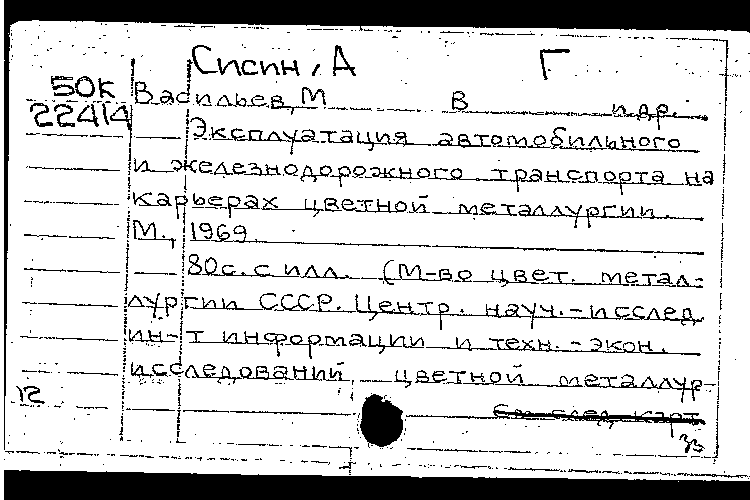 Сисин, А Г
50К
22414
Васильев, М В и др.
Эксплуатация автомобильного
и железнодорожного транспорта на
карьерах цветной металлургии.
М., 1969.
80с. с илл. (М-во цвет. метал-
лургии СССР. Центр. науч.-исслед.
ин-т информации и техн.-экон.
исследований цветной металлур-
12
См. след. карт.